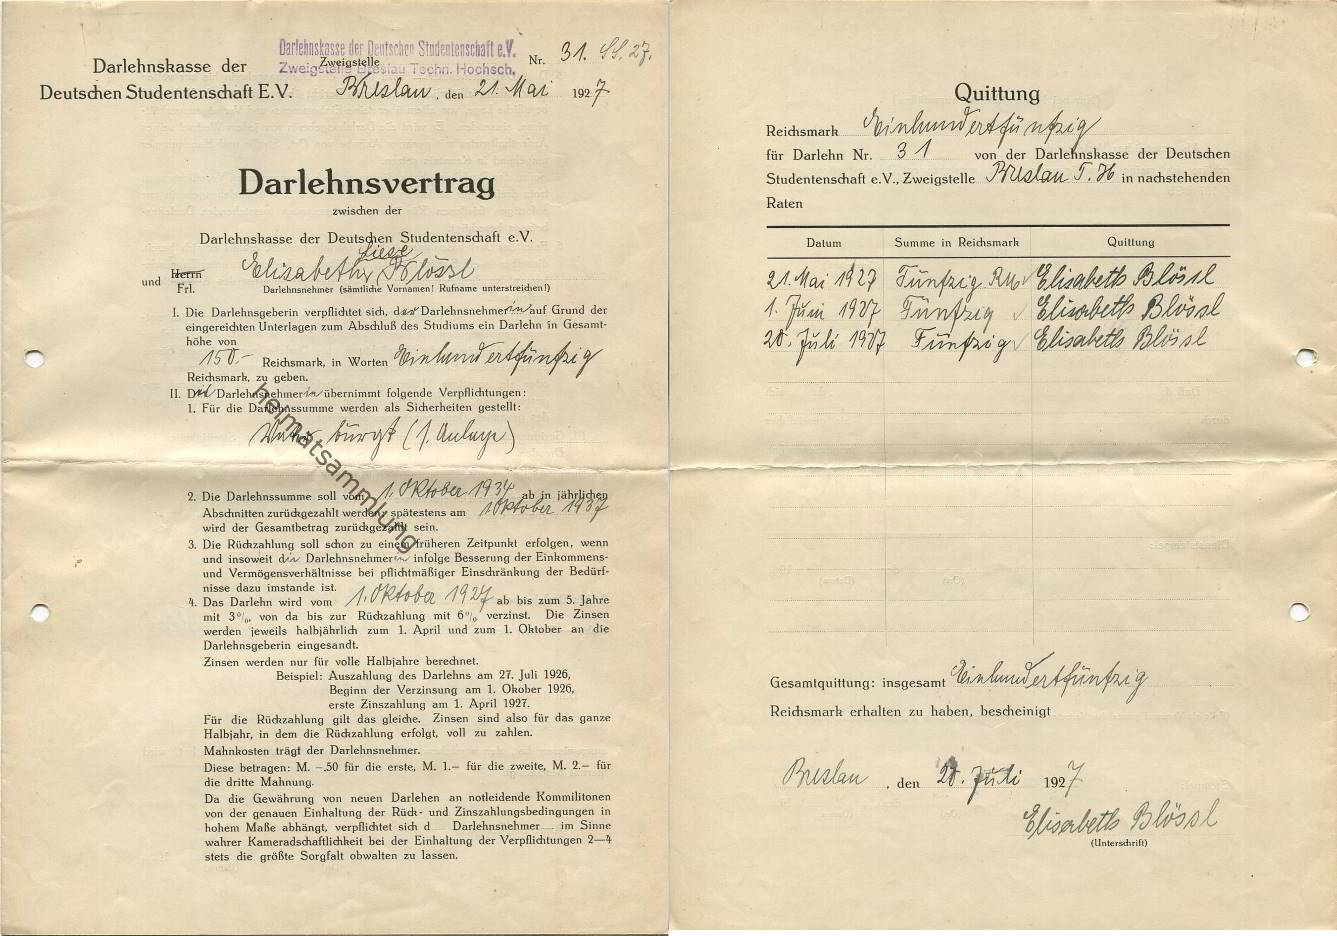 Darlehnskasse der
Deutschen Studentenschaft E.V.
Darlehnskasse der Deutschen Studentenschaft e.V.
Zweigstelle
Zweigstelle Breslau Techn. Hochsch.
Nr. 31. SS. 27.
Breslau, den 21. Mai 1927
Darlehnsvertrag
zwischen der
Darlehnskasse der Deutschen Studentenschaft e.V.
Liese
und Herrn Elisabeth, Blössl
Frl. Darlehnsnehmer (sämtliche Vornamen! Rufname unterstreichen!)
I. Die Darlehnsgeberin verpflichtet sich, der Darlehnsnehmerin auf Grund der
eingereichten Unterlagen zum Abschluß des Studiums ein Darlehn in Gesamt-
höhe von
150.- Reichsmark, in Worten Einhundertfünfzig
Reichsmark, zu geben.
II. Die Darlehnsnehmerin übernimmt folgende Verpflichtungen:
1. Für die Darlehnssumme werden als Sicherheiten gestellt:
Vater bürgt (1. Anlage)
2. Die Darlehnssumme soll vom 1. Oktober 1934 ab in jährlichen
Abschnitten zurückgezahlt werden; spätestens am 1 Oktober 1937
wird der Gesamtbetrag zurückgezahlt sein.
3. Die Rückzahlung soll schon zu einem früheren Zeitpunkt erfolgen, wenn
und insoweit die Darlehnsnehmerin infolge Besserung der Einkommens-
und Vermögensverhältnisse bei pflichtmäßiger Einschränkung der Bedürf-
nisse dazu imstande ist.
4. Das Darlehn wird vom 1. Oktober 1927 ab bis zum 5. Jahre
mit 3%, von da bis zur Rückzahlung mit 6% verzinst. Die Zinsen
werden jeweils halbjährlich zum 1. April und zum 1. Oktober an die
Darlehnsgeberin eingesandt.
Zinsen werden nur für volle Halbjahre berechnet.
Beispiel: Auszahlung des Darlehns am 27. Juli 1926,
Beginn der Verzinsung am 1. Okober 1926,
erste Zinszahlung am 1. April 1927.
Für die Rückzahlung gilt das gleiche. Zinsen sind also für das ganze
Halbjahr, in dem die Rückzahlung erfolgt, voll zu zahlen.
Mahnkosten trägt der Darlehnsnehmer.
Diese betragen: M. –.50 für die erste, M. 1.– für die zweite, M. 2.– für
die dritte Mahnung.
Da die Gewährung von neuen Darlehen an notleidende Kommilitonen
von der genauen Einhaltung der Rück- und Zinszahlungsbedingungen in
hohem Maße abhängt, verpflichtet sich d Darlehnsnehmer im Sinne
wahrer Kameradschaftlichkeit bei der Einhaltung der Verpflichtungen 2—4
stets die größte Sorgfalt obwalten zu lassen.
heimatsammlung
Quittung
Reichsmark Einhundertfünfzig
für Darlehn Nr. 31 von der Darlehnskasse der Deutschen
Studentenschaft e.V., Zweigstelle Breslau T. H in nachstehenden
Raten
Datum Summe in Reichsmark Quittung
21. Mai 1927 Fünfzig RM Elisabeth Blössl
1. Juni 1927 Fünfzig Elisabeth Blössl
20. Juli 1927 Fünfzig Elisabeth Blössl
Gesamtquittung: insgesamt Einhundertfünfzig
Reichsmark erhalten zu haben, bescheinigt
Breslau, den 20. Juli 1927
Elisabeth Blössl
(Unterschrift)